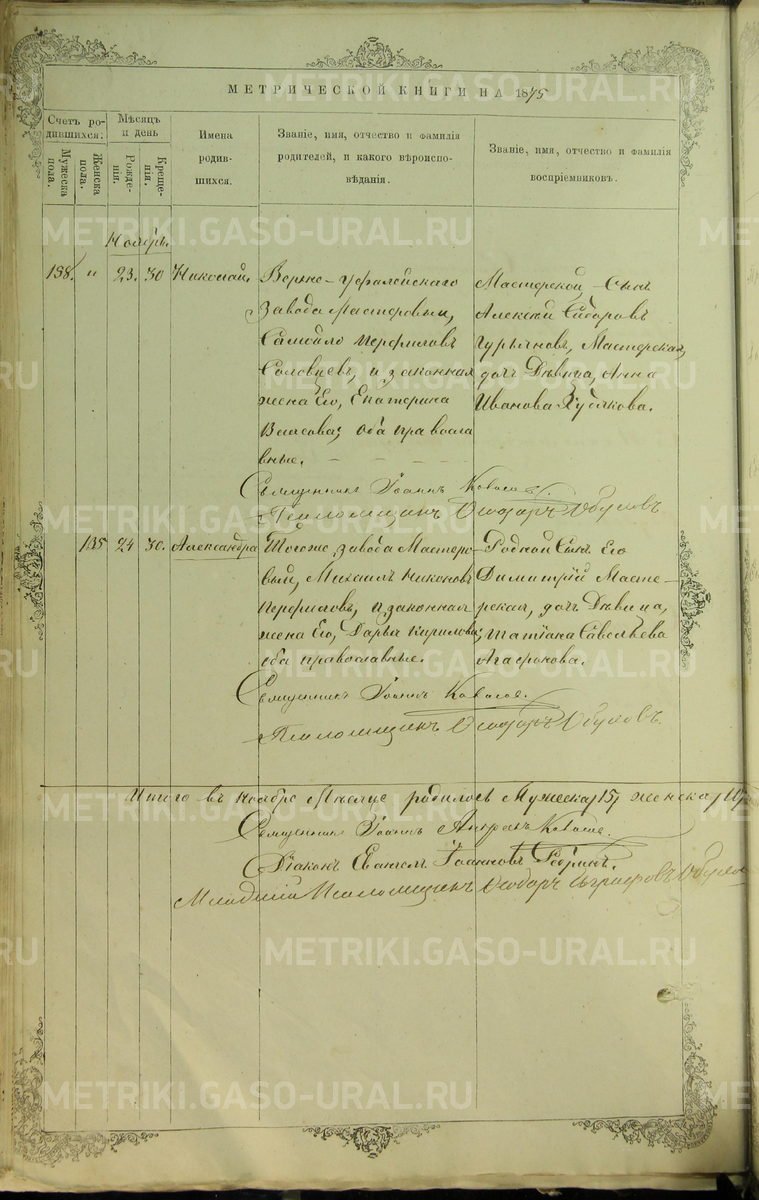 МЕТРИЧЕСКОЙ КНИГИ НА 1875
Счетъ родившихся:
Мужеска пола.
Женска пола.
Мѣсяцъ и день
Рожденія.
Крещенія.
Имена родившихся.
Званіе, имя, отчество и фамилія родителей, и какого вѣроисповѣданія.
Званіе, имя, отчество и фамилія воспріемниковъ.
Ноябрь.
138. " 23. 30 Николай.
Верхне-Уфалейскаго
завода мастеровый,
Самойло Перфиловъ
Соловцевъ, и законная
жена Его, Екатерина
Власова; оба православные.
Мастерской – Сынъ
Алексѣй Сидоровъ
Гурьяновъ, Мастерская
дочь Дѣвица, Анна
Иванова Худякова.
Священникъ Іоаннъ
Псаломщикъ Ѳеодоръ Обуховъ
135 24 30. Александра
Тогоже завода Мастеровый, Михаилъ Никоновъ
Перфиловъ, и законная
жена Его, Дарья Кирилова;
оба православные.
Родной Сынъ Его
Димитрій Мастерская, дочь Дѣвица,
Татіана Савельева
Агафонова.
Священникъ Іоаннъ
Псаломщикъ Ѳеодоръ Обуховъ.
Итого въ Ноябрѣ Мѣсяце родилось Мужеска /15/ женска /11/
Священникъ Іоаннъ
Діаконъ Евангелъ Іоанновъ
Младшій Псаломщикъ Ѳеодоръ
METRIKI.GASO-URAL.RU